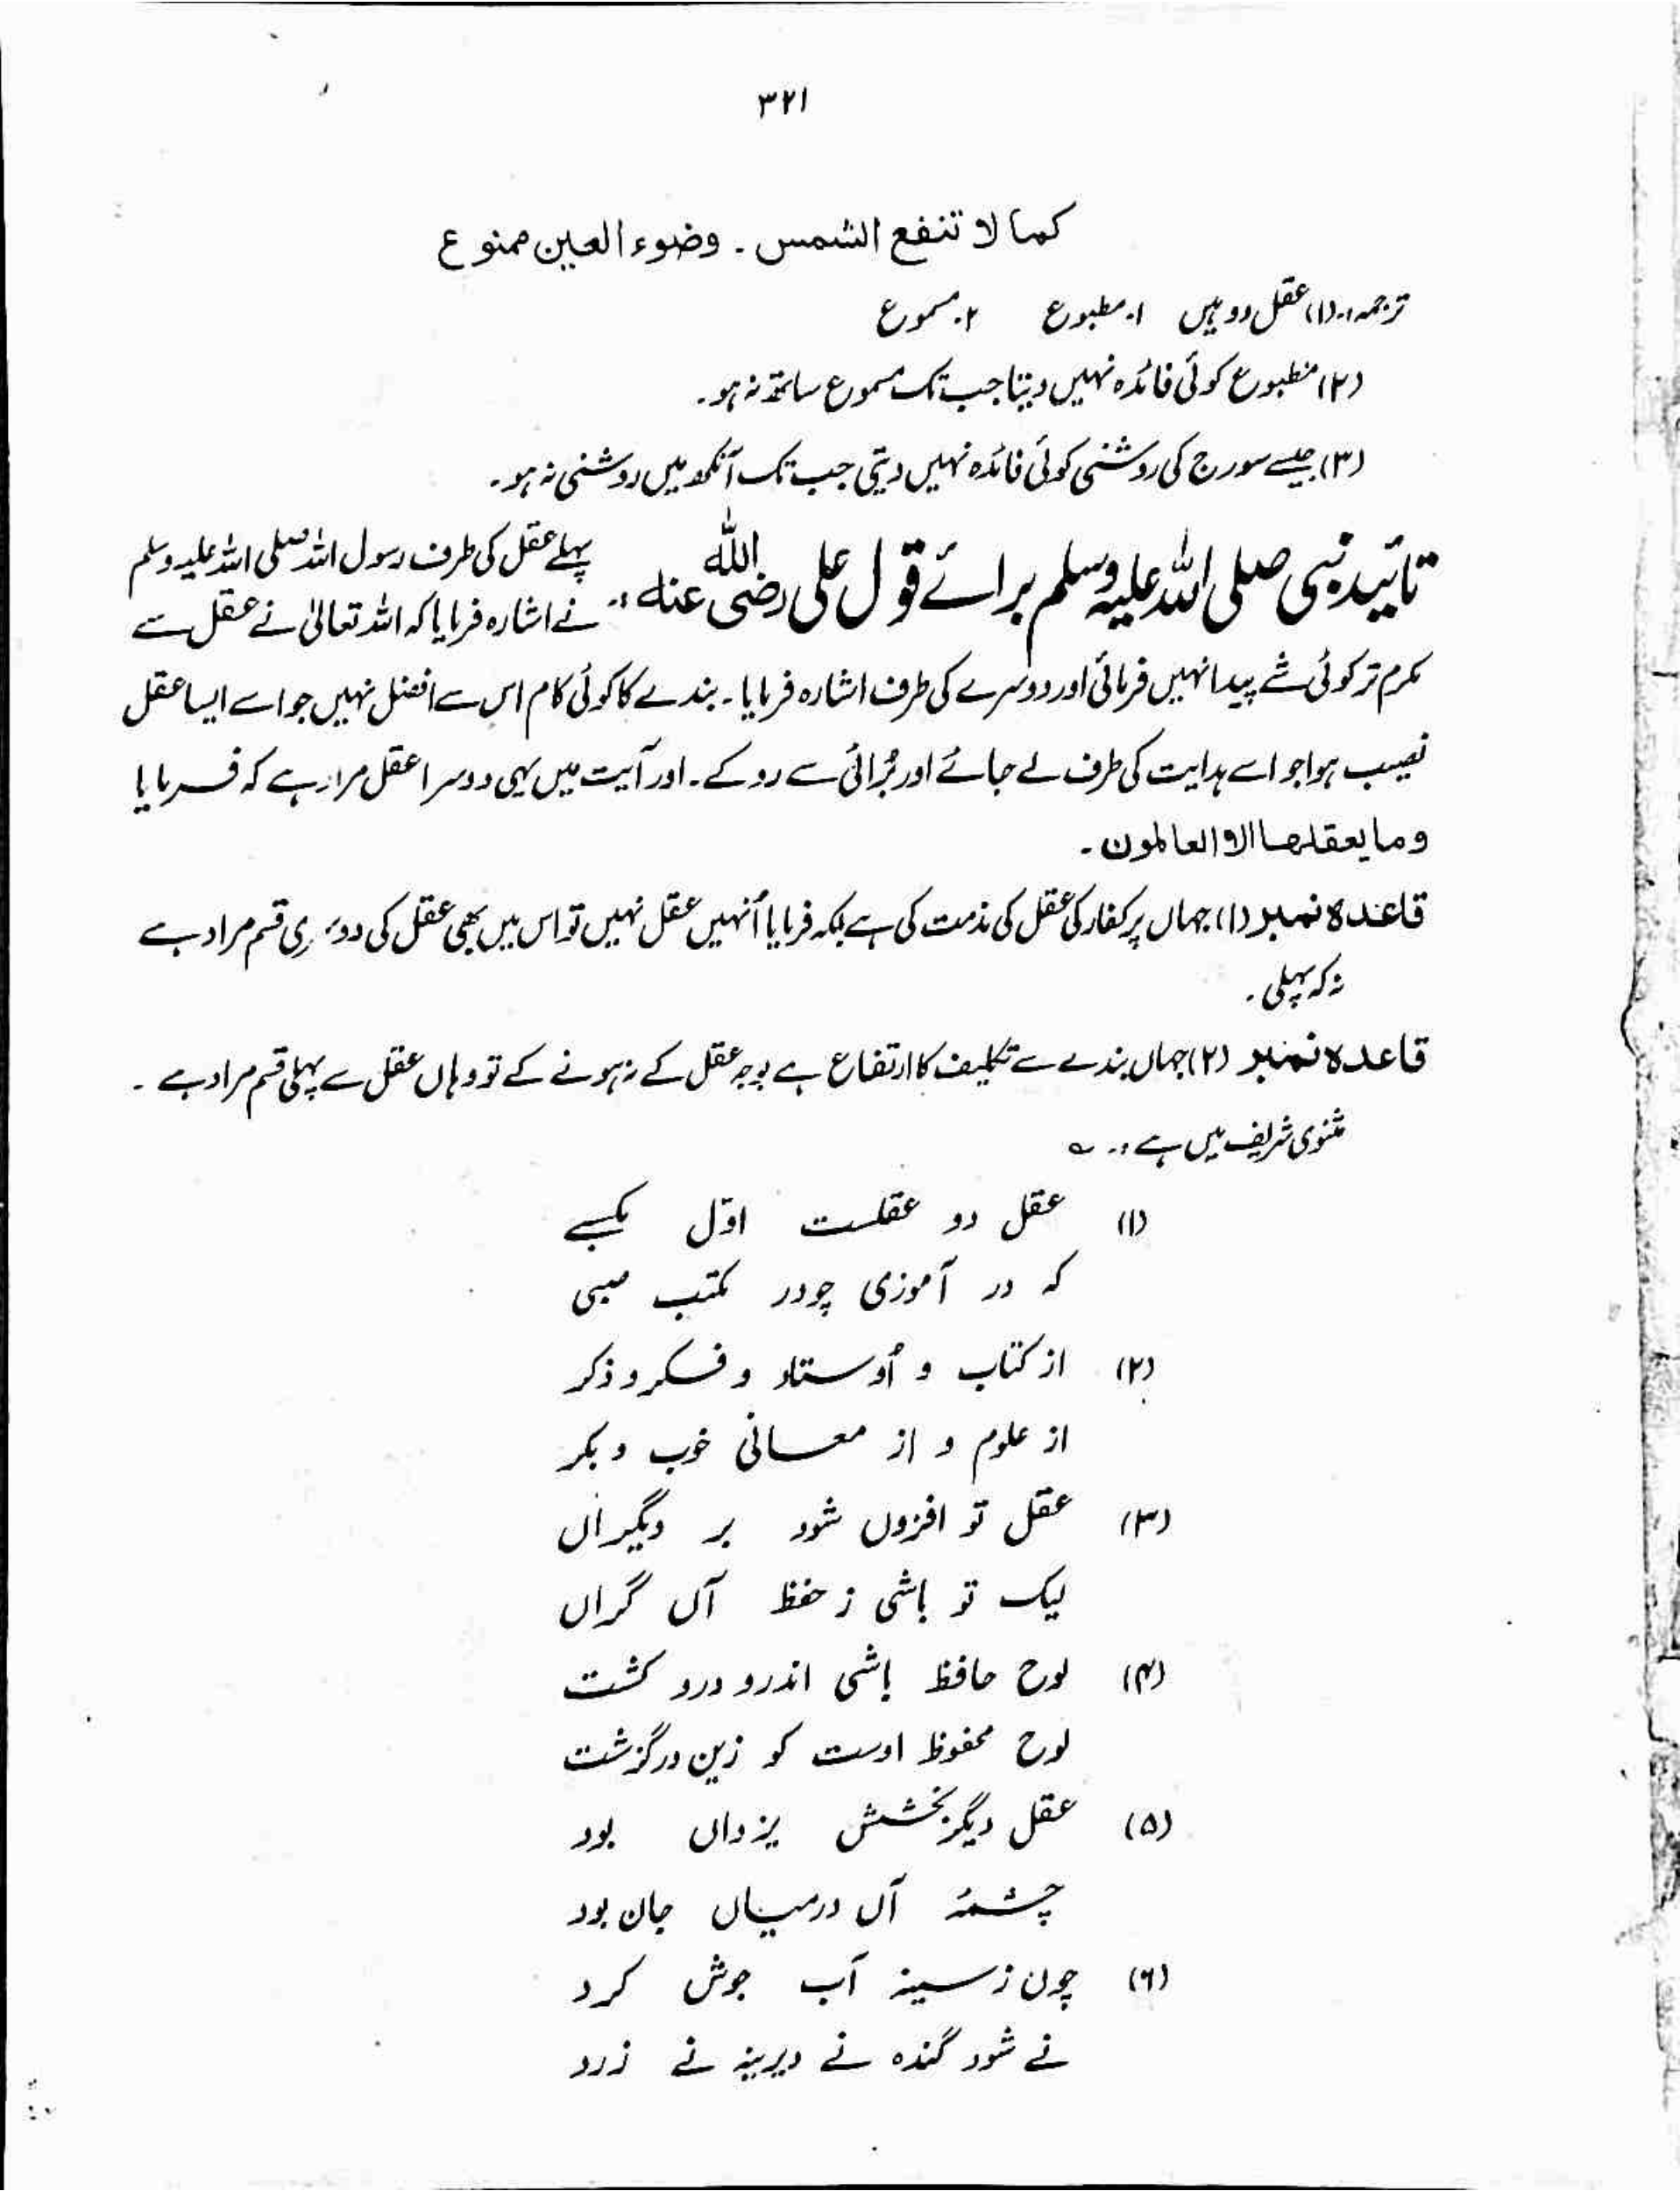 ۳۲۱
کما لا تنفع الشمس ۔ وضوء العین ممنوع
ترجمہ:۔ (۱) عقل دو ہیں ۱۔ مطبوع ۲۔ مسموع
(۲) مطبوع کوئی فائدہ نہیں دیتا جب تک مسموع ساتھ نہ ہو۔
(۳) جیسے سورج کی روشنی کوئی فائدہ نہیں دیتی جب تک آنکھ میں روشنی نہ ہو۔
تائید نبی صلی اللہ علیہ وسلم برائے قول علی رضی اللہ عنہ :۔ پہلے عقل کی طرف رسول اللہ صلی اللہ علیہ وسلم
نے اشارہ فرمایا کہ اللہ تعالیٰ نے عقل سے
مکرم تر کوئی شے پیدا نہیں فرمائی اور دوسرے کی طرف اشارہ فرمایا۔ بندے کا کوئی کام اس سے افضل نہیں جو اسے ایسا عقل
نصیب ہوا جو اسے ہدایت کی طرف لے جائے اور بُرائی سے روکے۔ اور آیت میں یہی دوسرا عقل مراد ہے کہ فرمایا
وما یعقلھا الا العالمون۔
قاعدہ نمبر (۱) جہاں پر کفار کی عقل کی مذمت کی ہے بلکہ فرمایا اُنہیں عقل نہیں تو اس میں بھی عقل کی دوسری قسم مراد ہے
نہ کہ پہلی۔
قاعدہ نمبر (۲) جہاں بندے سے تکلیف کا ارتفاع ہے بوجہ عقل کے نہ ہونے کے تو وہاں عقل سے پہلی قسم مراد ہے۔
مثنوی شریف میں ہے :۔ ؎
(۱) عقل دو عقلست اوّل مکسبے
کہ در آموزی چو در مکتب صبی
(۲) از کتاب و اُوستاد و فکر و ذکر
از علوم و از معانی خوب و بکر
(۳) عقل تو افزوں شود بر دیگراں
لیک تو باشی ز حفظ آں گراں
(۴) لوح حافظ باشی اندر و درو گشت
لوح محفوظ اوست کو زین درگزشت
(۵) عقل دیگر بخشش یزداں بود
چشمۂ آں درمیاں جان بود
(۶) چون ز سینہ آب جوش کرد
نے شود گندہ نے دیرینہ نے زرد